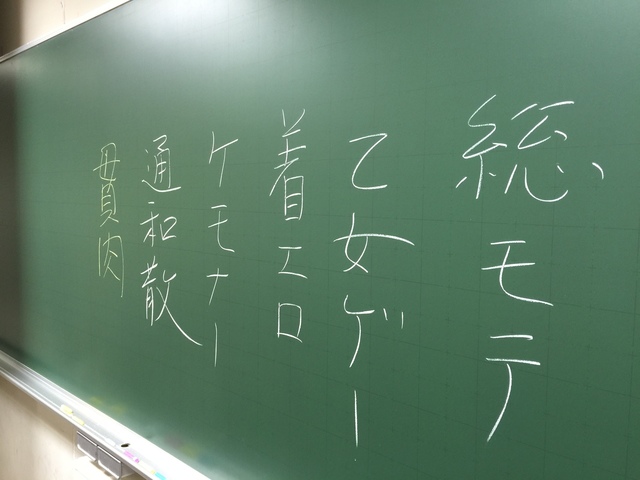 総モテ
乙女ゲー
着エロ
ケモナー
通和散
貫肉